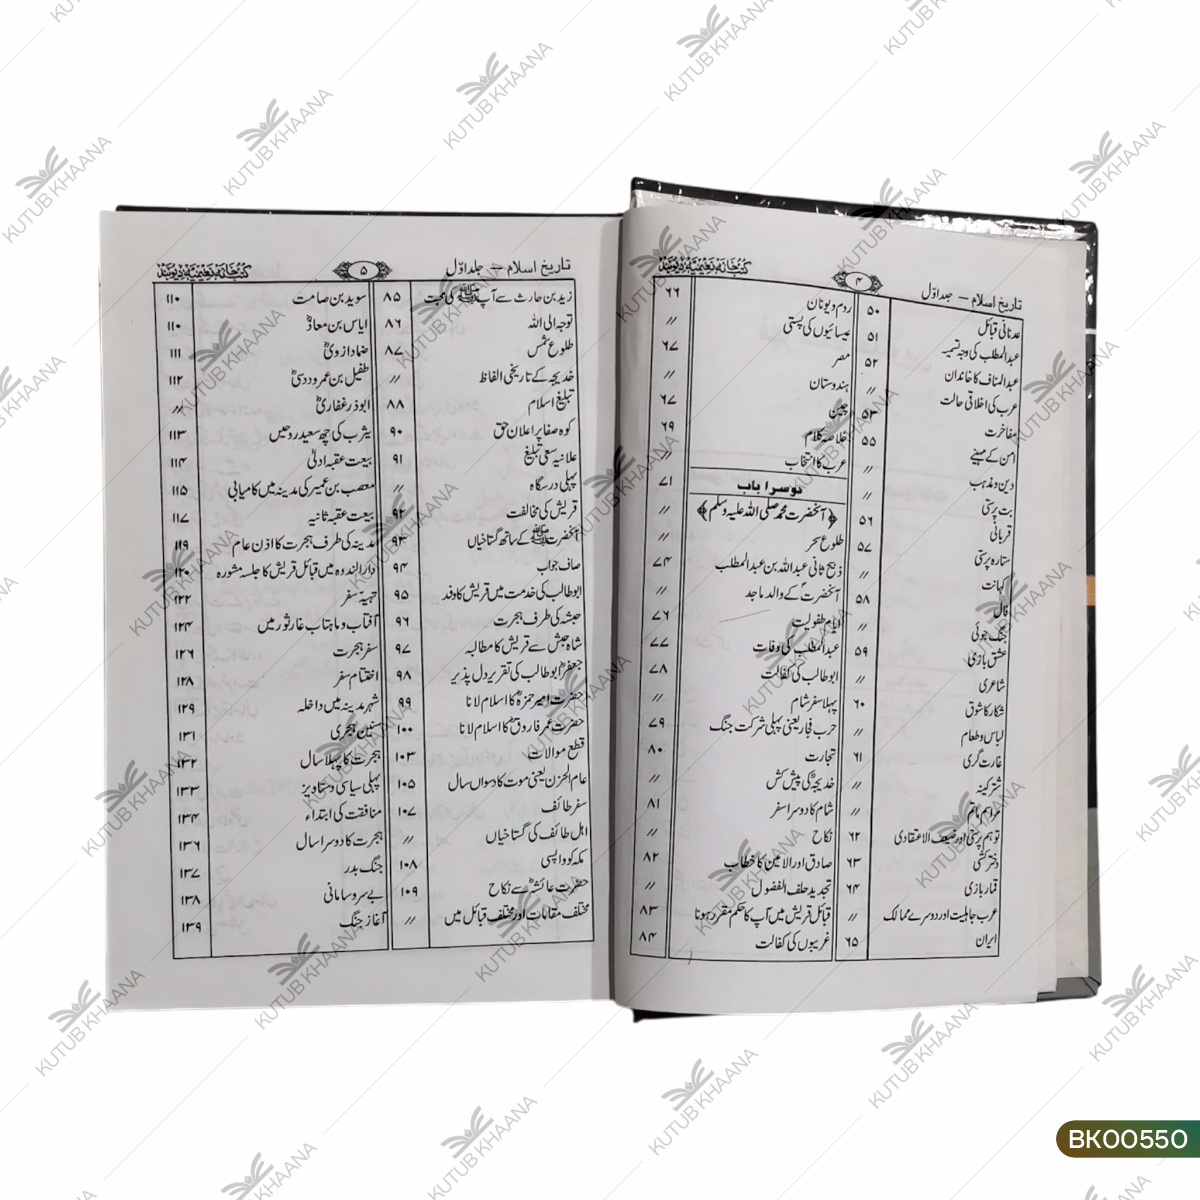 تاریخ اسلام — جلد اوّل
۴
کتب خانہ نعیمیہ دیوبند
عدنانی قبائل ۵۰
عبدالمطلب کی وجہ تسمیہ ۵۱
عبدالمناف کا خاندان ۵۲
عرب کی اخلاقی حالت //
مفاخرت ۵۳
امن کے مہینے ۵۵
دین و مذہب //
بت پرستی //
قربانی ۵۶
ستارہ پرستی ۵۷
کہانت //
فال ۵۸
جنگ جوئی //
عشق بازی ۵۹
شاعری
شکار کا شوق ۶۰
لباس و طعام //
غارت گری ۶۱
شتر کینہ //
مراسم ماتم //
توہم پرستی اور ضعیف الاعتقادی ۶۲
دختر کشی ۶۳
قمار بازی ۶۴
عرب جاہلیت اور دوسرے ممالک //
ایران ۶۵
روم و یونان ۶۶
عیسائیوں کی پستی //
مصر ۶۷
ہندوستان //
چین ۶۷
خلاصہ کلام ۶۹
عرب کا انتخاب //
دوسرا باب ۷۱
﴿آنحضرت محمد صلی اللہ علیہ وسلم﴾ //
طلوع سحر
ذبیح ثانی عبداللہ بن عبدالمطلب ۷۴
آنحضرتؐ کے والد ماجد //
ایام طفولیت ۷۶
عبدالمطلب کی وفات ۷۷
ابوطالب کی کفالت ۷۸
پہلا سفر شام //
حرب فجار یعنی پہلی شرکت جنگ ۷۹
تجارت ۸۰
خدیجہؓ کی پیش کش //
شام کا دوسرا سفر ۸۱
نکاح //
صادق اور الامین کا خطاب ۸۲
تجدید حلف الفضول //
قبائل قریش میں آپ کا حکم مقرر ہونا ۸۳
غریبوں کی کفالت ۸۴
تاریخ اسلام — جلد اوّل
۵
کتب خانہ نعیمیہ دیوبند
زید بن حارث سے آپ ﷺ کی محبت ۸۵
توجہ الی اللہ ۸۶
طلوع شمس ۸۷
خدیجہ کے تاریخی الفاظ //
تبلیغ اسلام ۸۸
کوہ صفا پر اعلان حق ۹۰
علانیہ سعی تبلیغ ۹۱
پہلی درسگاہ //
قریش کی مخالفت ۹۲
آنحضرت ﷺ کے ساتھ گستاخیاں ۹۳
صاف جواب ۹۴
ابوطالب کی خدمت میں قریش کا وفد ۹۵
حبشہ کی طرف ہجرت ۹۶
شاہ حبش سے قریش کا مطالبہ ۹۷
جعفرؓ ابوطالب کی تقریر دل پذیر ۹۸
حضرت امیر حمزہؓ کا اسلام لانا ۹۹
حضرت عمر فاروقؓ کا اسلام لانا ۱۰۰
قطع موالات ۱۰۳
عام الحزن یعنی موت کا دسواں سال ۱۰۵
سفر طائف ۱۰۷
اہل طائف کی گستاخیاں //
مکہ کو واپسی ۱۰۸
حضرت عائشہؓ سے نکاح ۱۰۹
مختلف مقامات اور مختلف قبائل میں //
سوید بن صامت ۱۱۰
ایاس بن معاذؓ ۱۱۰
ضماد ازدیؓ ۱۱۱
طفیل بن عمرو دوسیؓ ۱۱۲
ابوذر غفاریؓ //
یثرب کی چھ سعید روحیں ۱۱۳
بیعت عقبہ اولیٰ ۱۱۴
معصب بن عمیر کی مدینہ میں کامیابی ۱۱۵
بیعت عقبہ ثانیہ ۱۱۷
مدینہ کی طرف ہجرت کا اذن عام ۱۱۹
دارالندوہ میں قبائل قریش کا جلسہ مشورہ ۱۲۰
تہیہ سفر ۱۲۲
آفتاب و ماہتاب غار ثور میں ۱۲۴
سفر ہجرت ۱۲۶
اختتام سفر ۱۲۸
شہر مدینہ میں داخلہ ۱۲۹
سنین ہجری ۱۳۱
ہجرت کا پہلا سال ۱۳۲
پہلی سیاسی دستاویز ۱۳۳
منافقت کی ابتداء ۱۳۴
ہجرت کا دوسرا سال ۱۳۶
جنگ بدر ۱۳۷
بے سروسامانی ۱۳۸
آغاز جنگ ۱۳۹
KUTUB KHAANA
BK00550